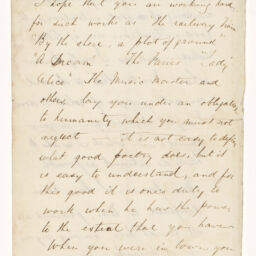 I hope that you are working hard
for such works as "The railway train
"By the shore, a plot of ground"
"A Dream" The Fairies "Lady
Alice" The Music Master and
others lay you under an obligation
to humanity which you must not
neglect it is not easy to define
what good poetry does, but it
is easy to understand, and for
this good it is one's duty to
work when he has the power
to the extent that you have
When you were in town you